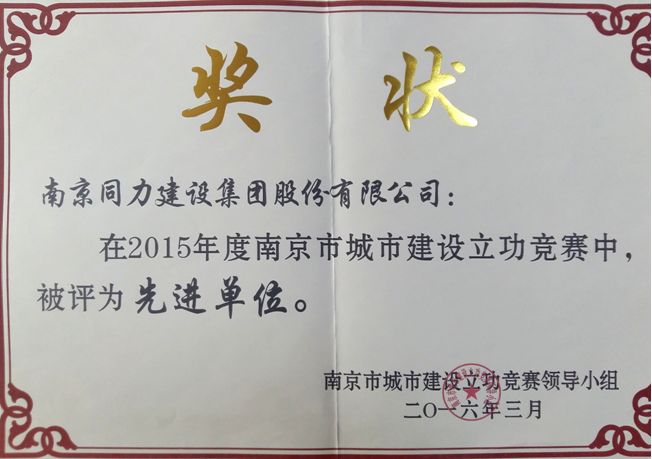 奖状
南京同力建设集团股份有限公司：
在2015年度南京市城市建设立功竞赛中，
被评为先进单位。
南京市城市建设立功竞赛领导小组
二〇一六年三月